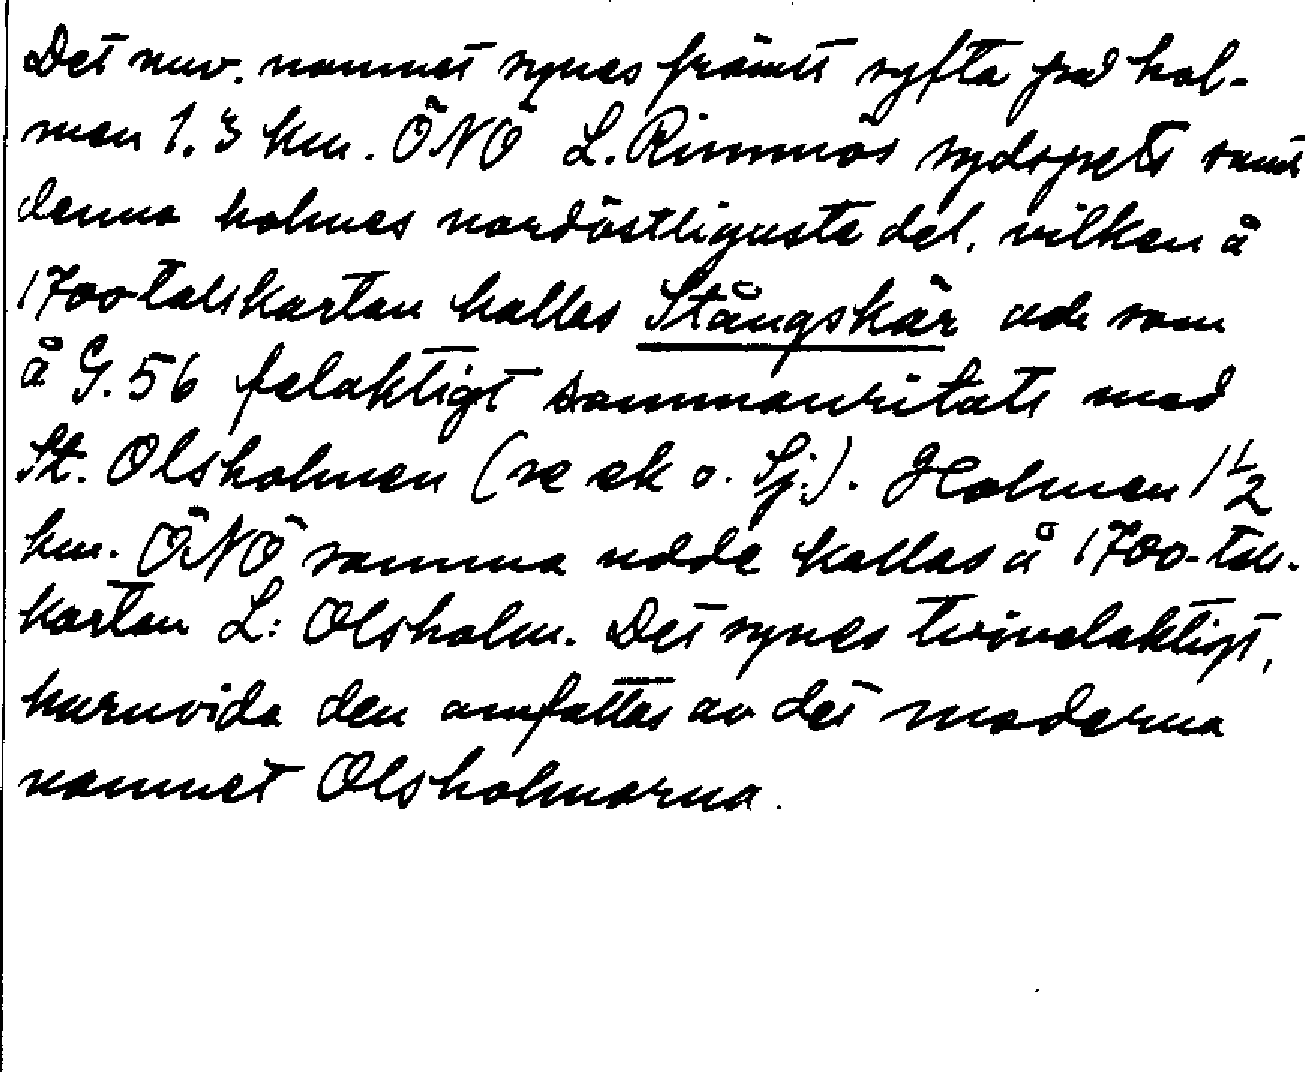 Det nuv. namnet synes främst syfta på hol-
men 1.3 km. ÖNÖ L. Rimmös sydspets samt
denna holmes nordöstligaste del, vilken å
1700-talskartan kallas Stångskär och som
å G. 56 felaktigt sammanritats med
St. Olsholmen (se ek o. Sj.). Holmen 1 1/2
km. ÖNÖ samma udde kallas å 1700-tals-
kartan L: Olsholm. Det synes tvivelaktigt,
huruvida den omfattas av det moderna
namnet Olsholmarna.